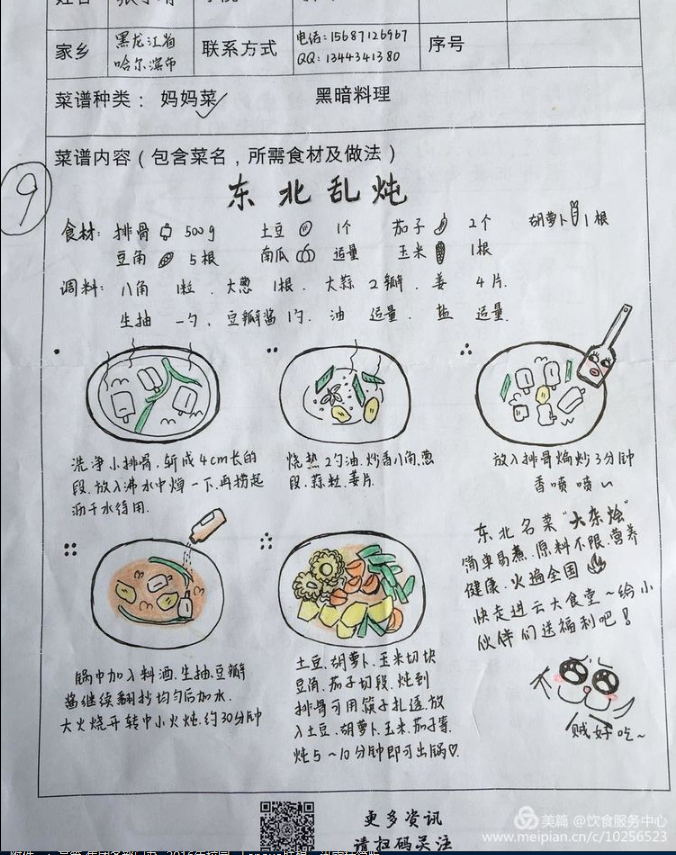 家乡 黑龙江省哈尔滨市 联系方式 电话:15687126967 QQ:1344341380 序号
菜谱种类： 妈妈菜✓ 黑暗料理
菜谱内容（包含菜名，所需食材及做法）
9
东北乱炖
食材: 排骨 500g 土豆 1个 茄子 2个 胡萝卜 1根
豆角 5根 南瓜 适量 玉米 1根
调料: 八角 1粒. 大葱 1根. 大蒜 2瓣. 姜 4片.
生抽 一勺. 豆瓣酱 1勺. 油 适量. 盐 适量.
洗净小排骨.斩成4cm长的
段.放入沸水中焯一下.再捞起
沥干水待用.
烧热2勺油.炒香八角.葱
段.蒜粒.姜片.
放入排骨煸炒3分钟
香喷喷~
锅中加入料酒.生抽.豆瓣
酱继续翻抄均匀后加水.
大火烧开转中小火炖.约30分钟
土豆.胡萝卜.玉米切块
豆角.茄子切段.炖到
排骨可用筷子扎透.放
入土豆.胡萝卜.玉米.茄子等.
炖5~10分钟即可出锅♡.
东北名菜"大杂烩"
简单易煮.原料不限.营养
健康.火遍全国
快走进云大食堂~给小
伙伴们送福利吧!
贼好吃~
更多资讯
请扫码关注
美篇 @饮食服务中心
www.meipian.cn/c/10256523